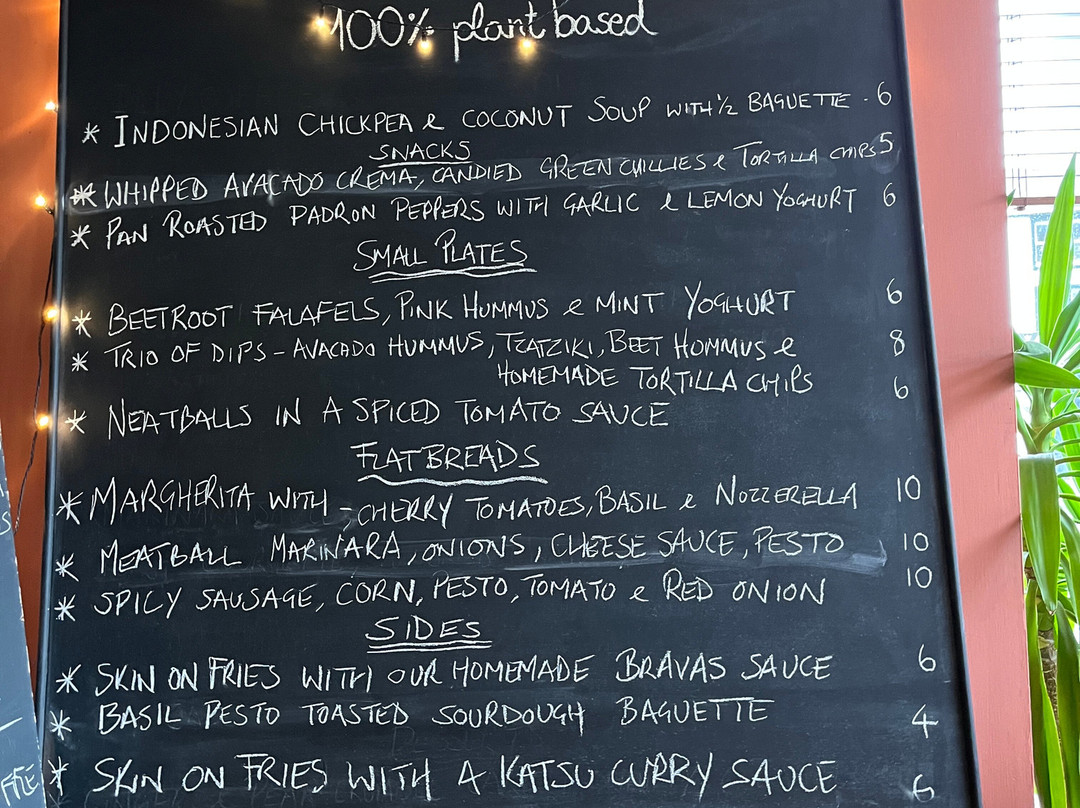 100% plant based
* INDONESIAN CHICKPEA & COCONUT SOUP WITH ½ BAGUETTE - 6
SNACKS
* WHIPPED AVACADO CREMA, CANDIED GREEN CHILLIES & TORTILLA CHIPS 5
* PAN ROASTED PADRON PEPPERS WITH GARLIC & LEMON YOGHURT 6
SMALL PLATES
* BEETROOT FALAFELS, PINK HUMMUS & MINT YOGHURT 6
* TRIO OF DIPS - AVACADO HUMMUS, TZATZIKI, BEET HOMMUS & 8
HOMEMADE TORTILLA CHIPS
* NEATBALLS IN A SPICED TOMATO SAUCE 6
FLATBREADS
* MARGHERITA WITH - CHERRY TOMATOES, BASIL & NOZZERELLA 10
* MEATBALL MARINARA, ONIONS, CHEESE SAUCE, PESTO 10
* SPICY SAUSAGE, CORN, PESTO, TOMATO & RED ONION 10
SIDES
* SKIN ON FRIES WITH OUR HOMEMADE BRAVAS SAUCE 6
* BASIL PESTO TOASTED SOURDOUGH BAGUETTE 4
* SKIN ON FRIES WITH A KATSU CURRY SAUCE 6